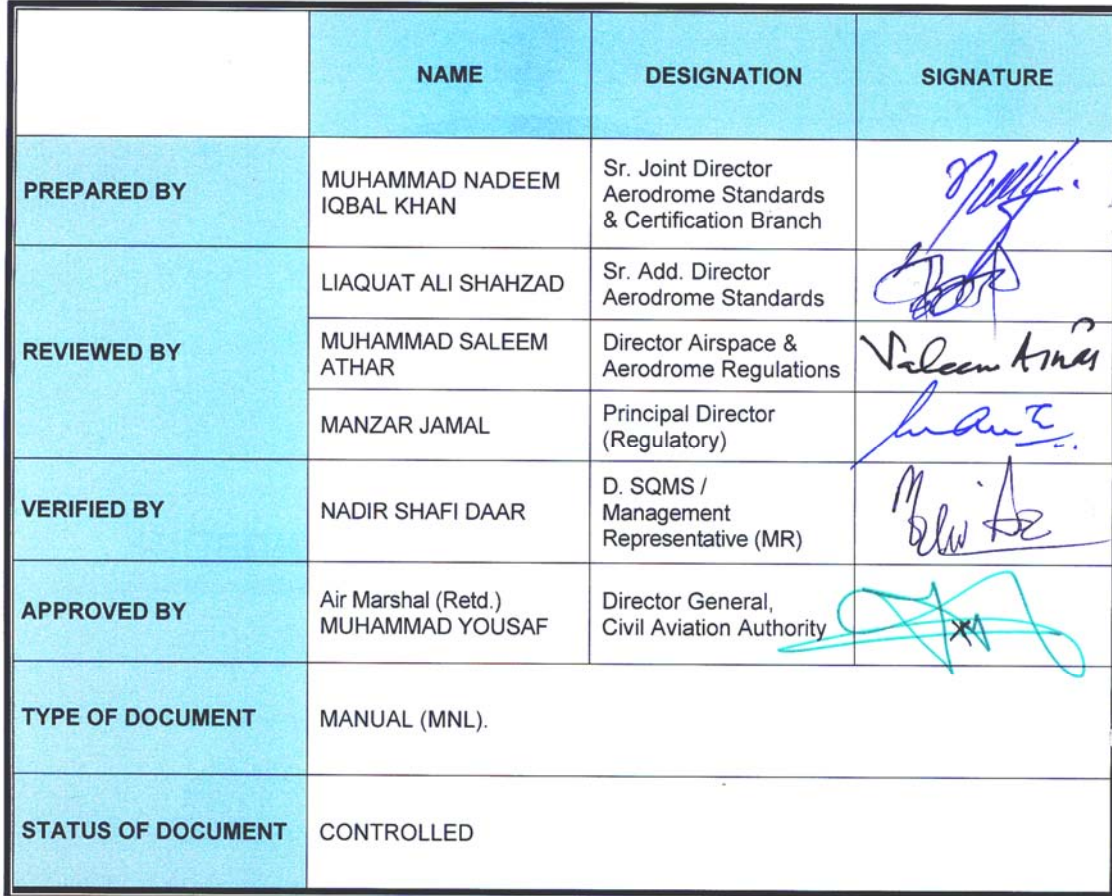 NAME
DESIGNATION
SIGNATURE
PREPARED BY
MUHAMMAD NADEEM
IQBAL KHAN
Sr. Joint Director
Aerodrome Standards
& Certification Branch
REVIEWED BY
LIAQUAT ALI SHAHZAD
Sr. Add. Director
Aerodrome Standards
MUHAMMAD SALEEM
ATHAR
Director Airspace &
Aerodrome Regulations
MANZAR JAMAL
Principal Director
(Regulatory)
VERIFIED BY
NADIR SHAFI DAAR
D. SQMS /
Management
Representative (MR)
APPROVED BY
Air Marshal (Retd.)
MUHAMMAD YOUSAF
Director General,
Civil Aviation Authority
TYPE OF DOCUMENT
MANUAL (MNL).
STATUS OF DOCUMENT
CONTROLLED